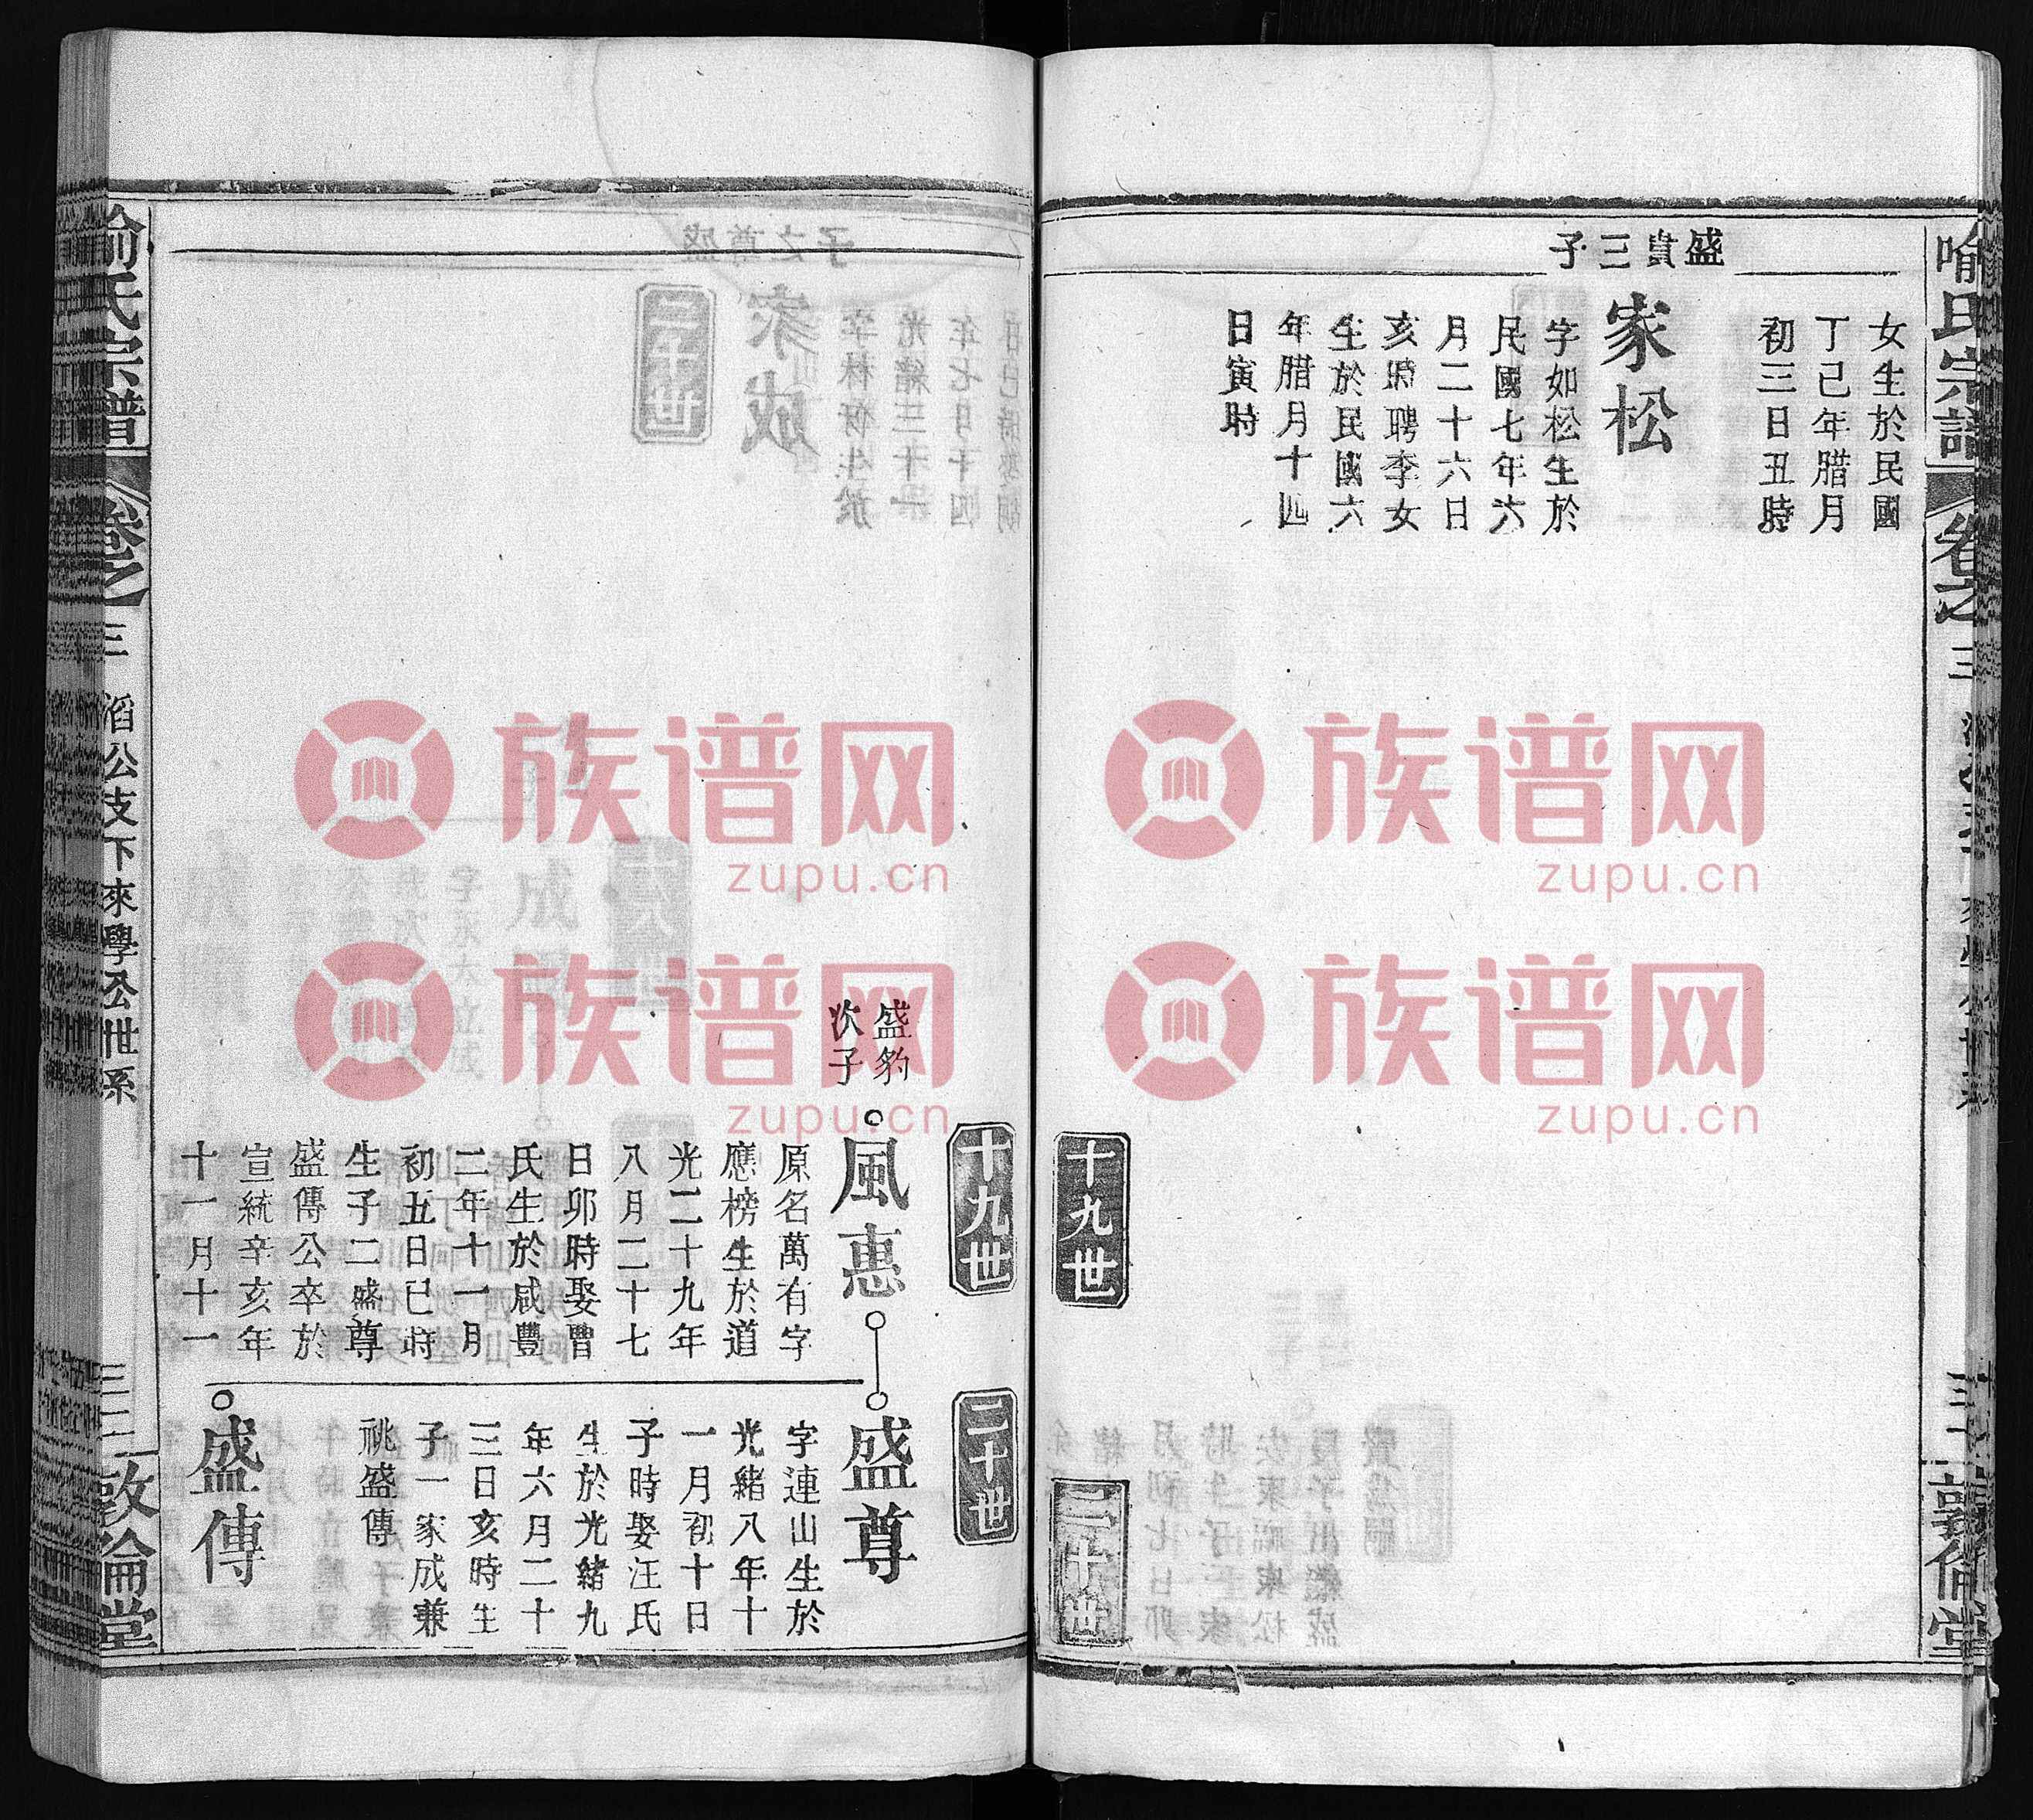 喻氏宗譜
卷之
三
三一
敦倫堂
女生於民國
丁己年腊月
初三日丑時
盛貴三子
家松
字如松生於
民國七年六
月二十六日
亥時聘李女
生於民國六
年腊月十四
日寅時
十九世
二十世
十九世
二十世
盛豹
次子
風惠
原名萬有字
應榜生於道
光二十九年
八月二十七
日卯時娶曹
氏生於咸豐
二年十一月
初五日巳時
生子二盛尊
盛傳公卒於
宣統辛亥年
十一月十一
盛尊
字連山生於
光緒八年十
一月初十日
子時娶汪氏
生於光緒九
年六月二十
三日亥時生
子一家成兼
祧盛傳
盛傳
喻氏宗譜
卷之
三
滔公支下來學公世系
三二
敦倫堂
族谱网
zupu.cn
族谱网
zupu.cn
族谱网
zupu.cn
族谱网
zupu.cn